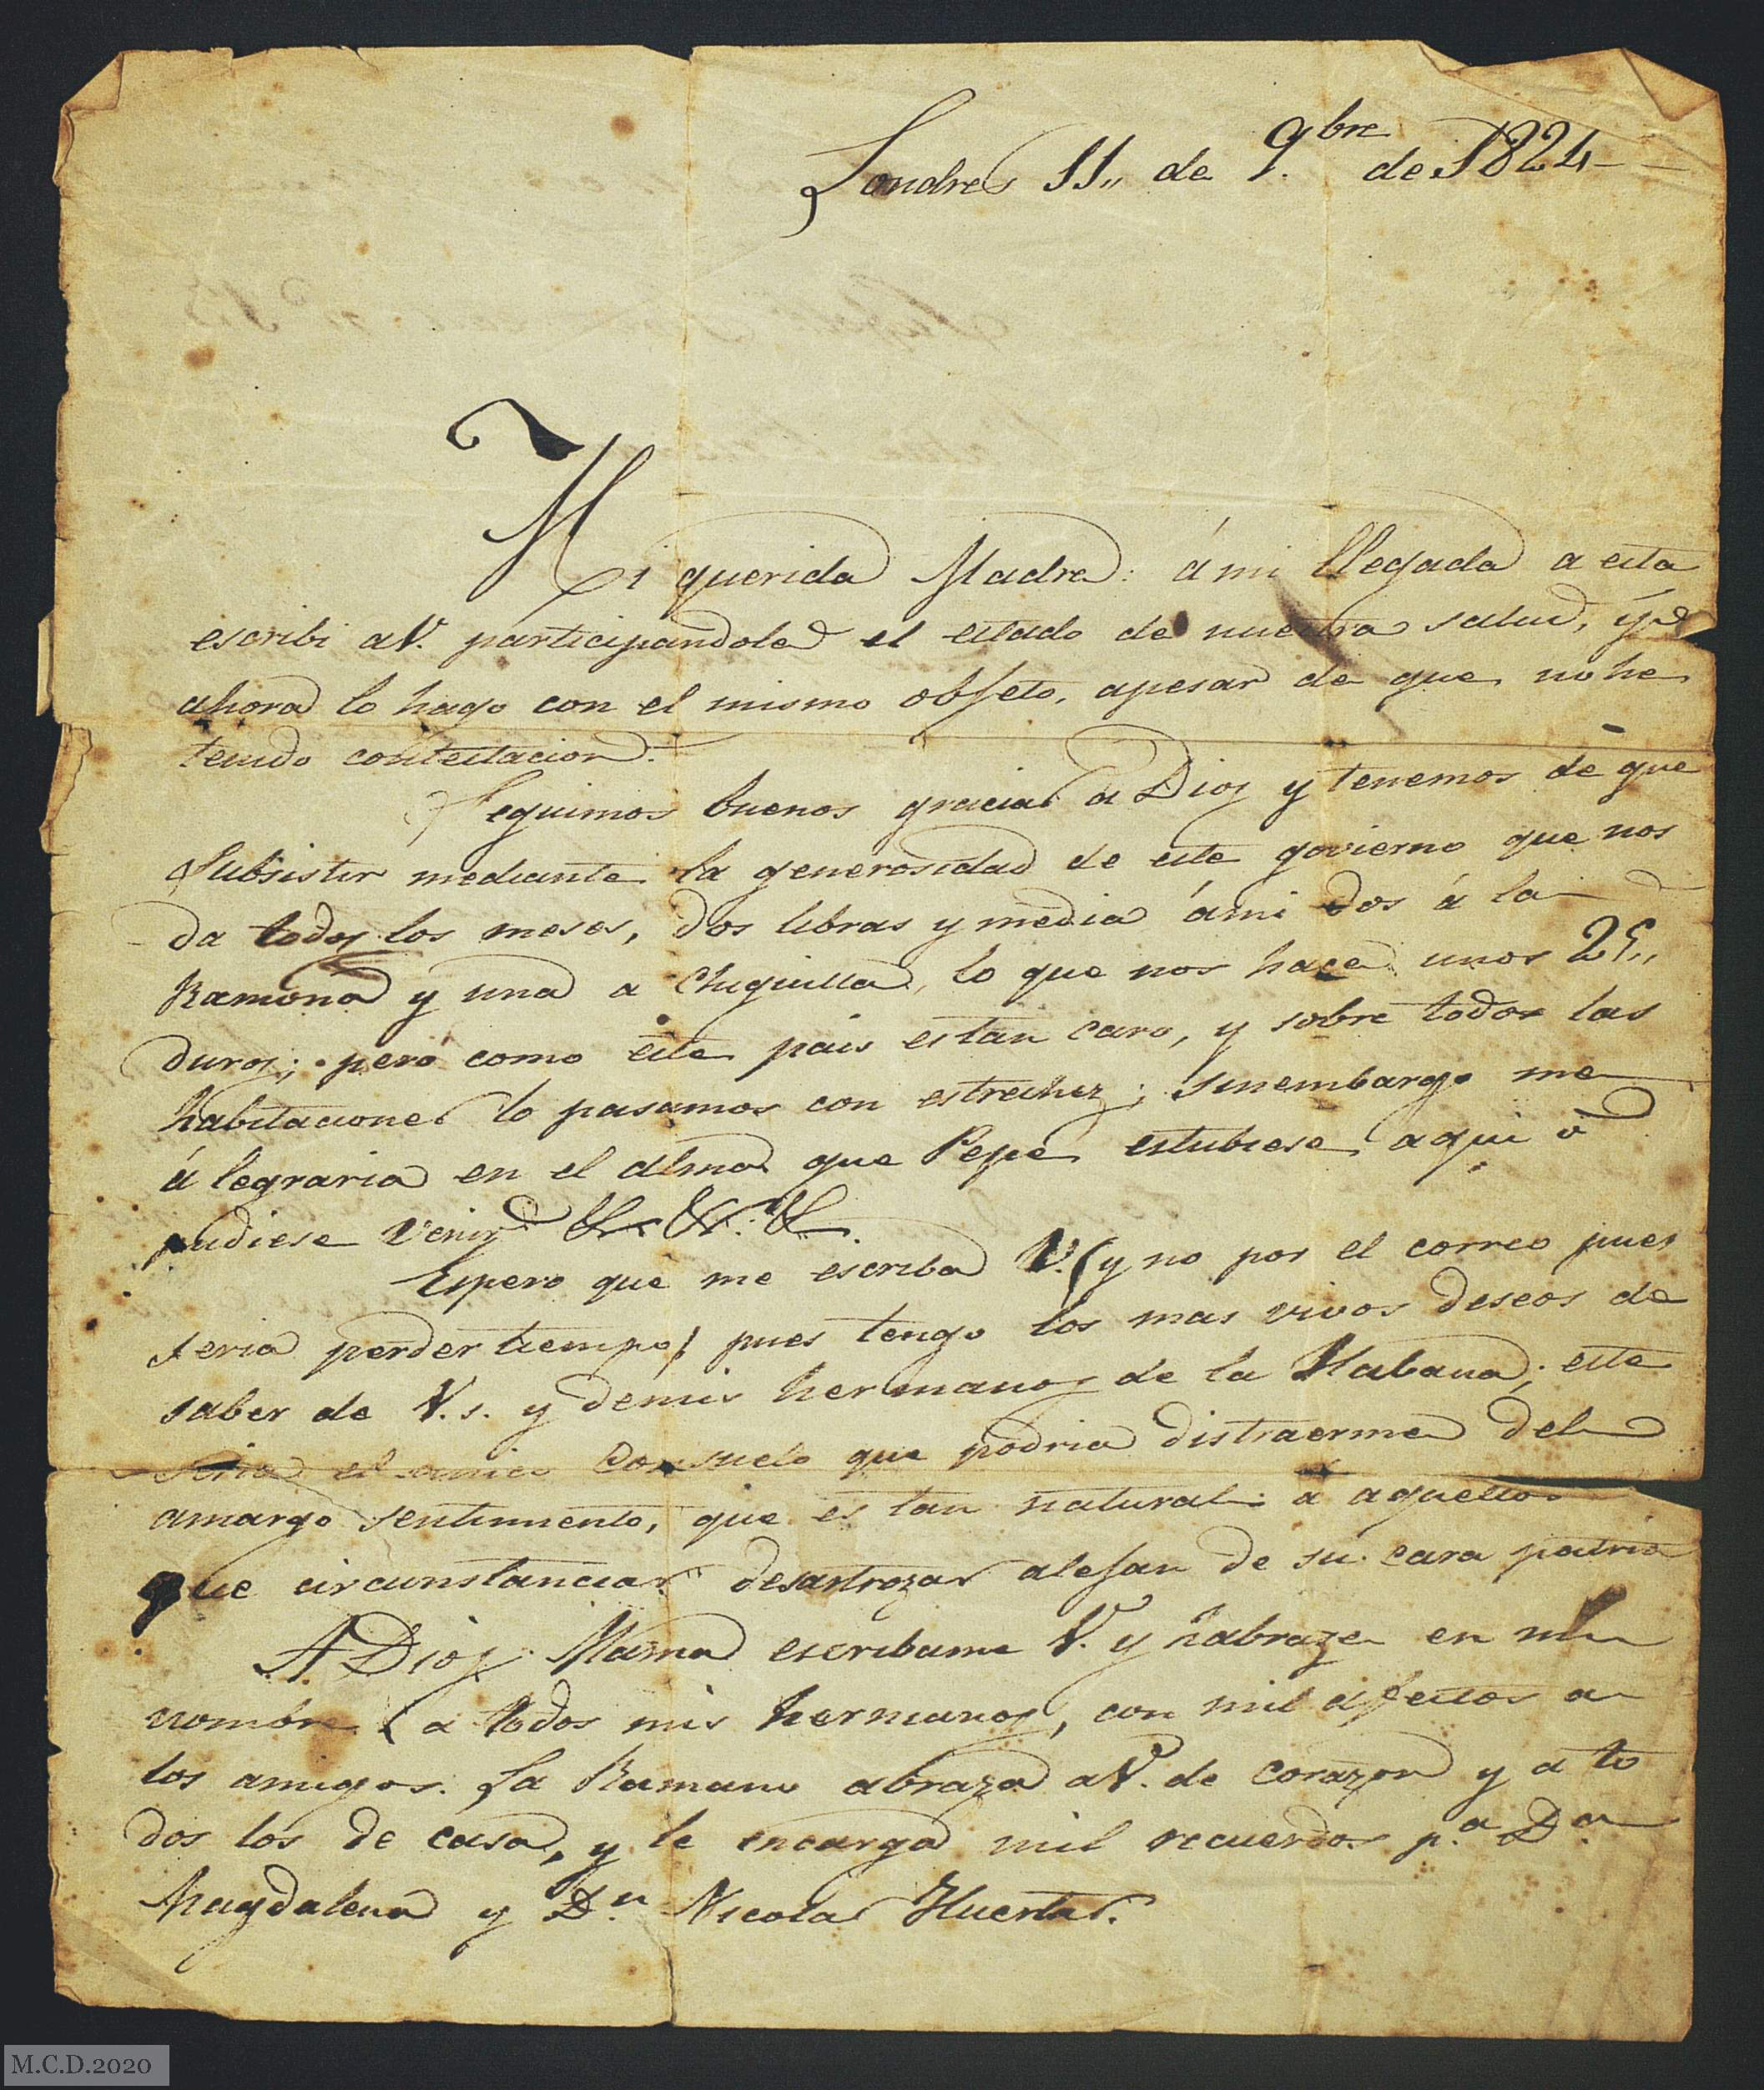 Londres 11,, de 9.bre de 1824
Mi querida Madre: á mi llegada a esta
escribi a V. participandole el estado de nuestra salud, y
ahora lo hago con el mismo objeto, apesar de que no he
tenido contestacion.
Seguimos buenos gracias a Dios y tenemos de que
subsistir mediante la generosidad de este govierno que nos
da todos los meses, dos libras y media á mi dos á la
Ramona y una a Chiquilla, lo que nos hace unos 25,,
duros; pero como este pais es tan caro, y sobre todo las
habitaciones lo pasamos con estrechez; sinembargo me
á legraria en el alma que Pepe estubiese aqui ó
pudiese venir &. &. &.
Espero que me escriba V. (y no por el correo pues
seria perder tiempo) pues tengo los mas vivos deseos de
saber de V.s. y demis hermanos de la Habana; este
seria el unico consuelo que podria distraerme del
amargo sentimiento, que es tan natural á aquellos
que circunstancias desastrozas alejan de su cara patria
A Dios Mama escribame V. y habraze en mi
nombre a todos mis hermanos, con mil afectos a
los amigos. La Ramana abraza a V. de corazon y a to
dos los de casa, y le encarga mil recuerdos p.a D.a
Magdalena y D.n Nicolas Huertas.
M.C.D.2020